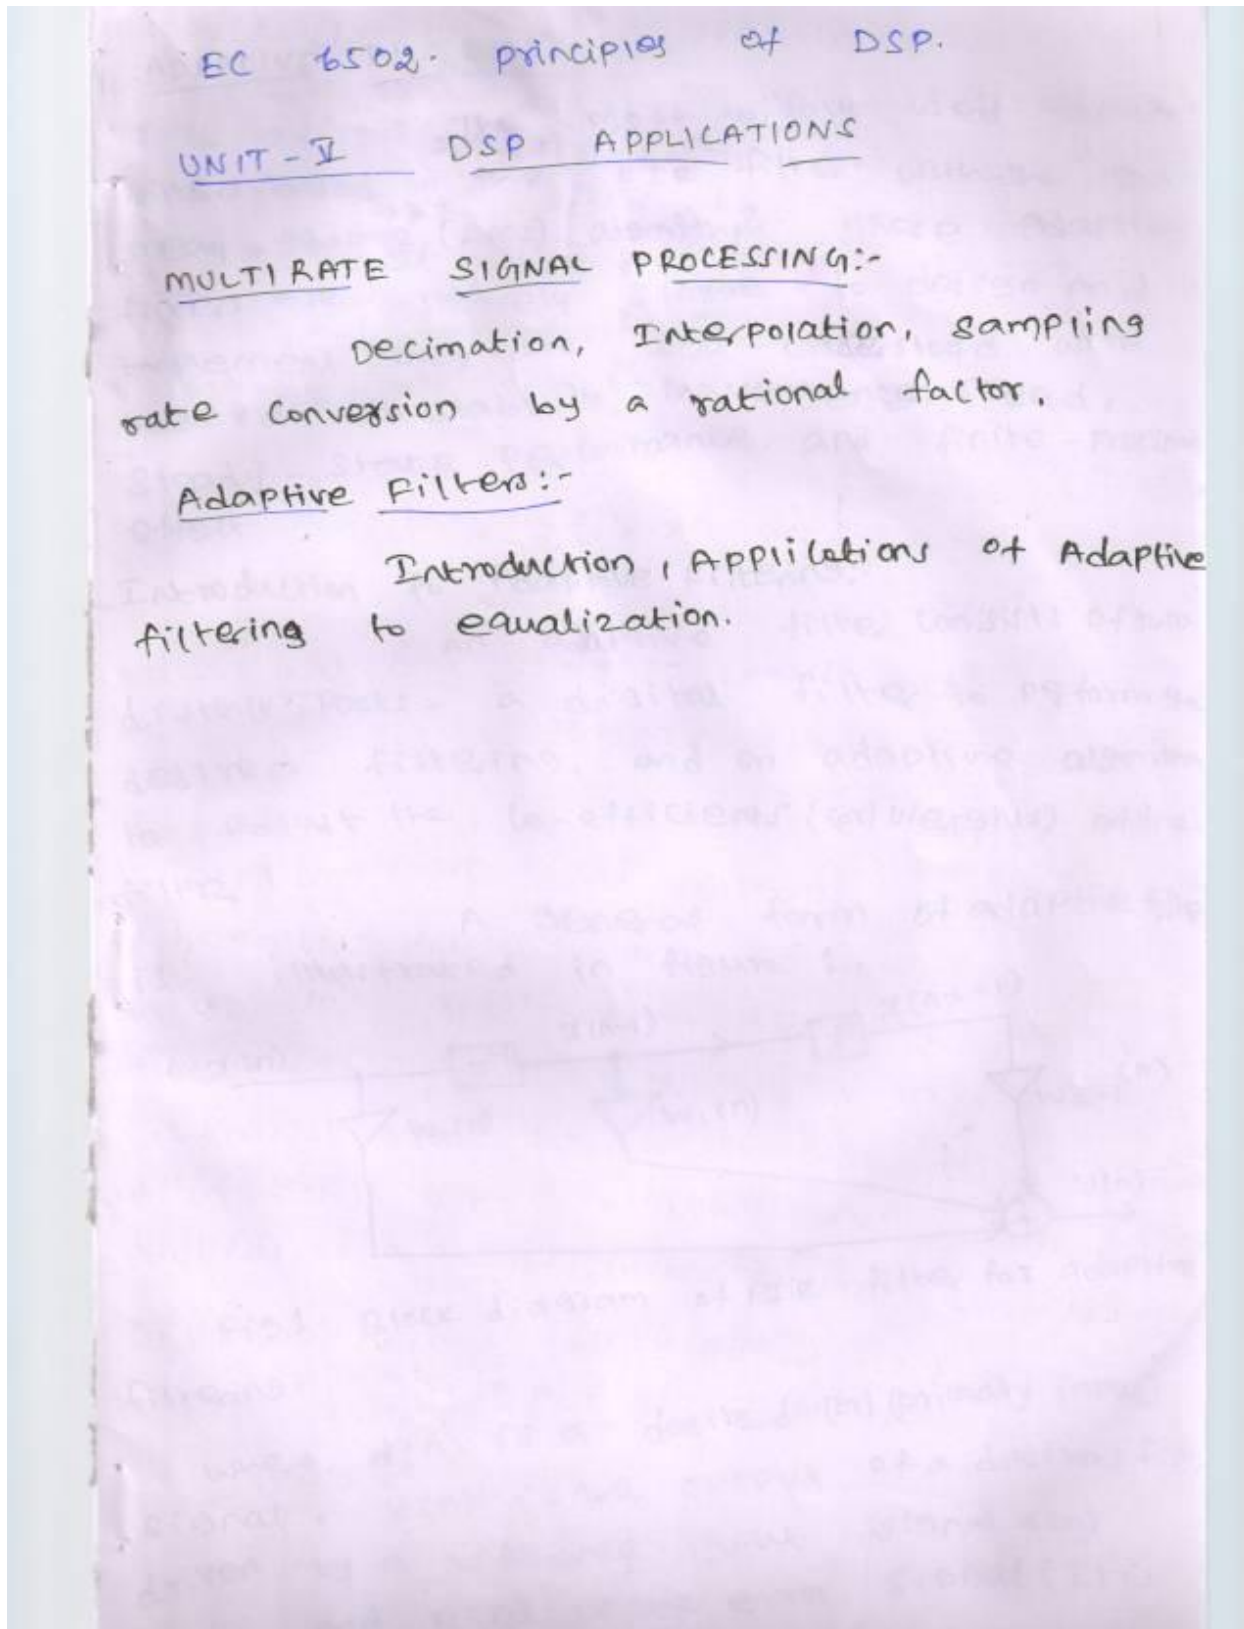 EC 6502. principles of DSP.
UNIT - V DSP APPLICATIONS
MULTIRATE SIGNAL PROCESSING:-
Decimation, Interpolation, sampling
rate conversion by a rational factor.
Adaptive Filters:-
Introduction, Applications of Adaptive
filtering to equalization.